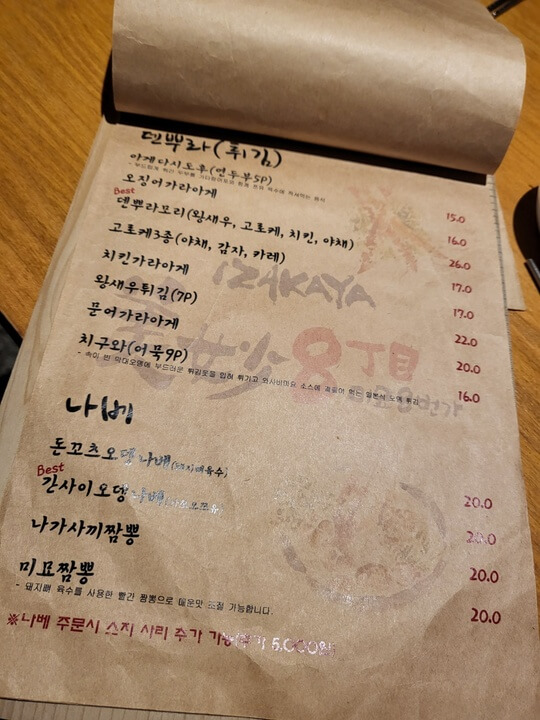 덴뿌라(튀김)
아게다시도후(연두부5P)
오징어가라아게 15.0
Best
덴뿌라모리(왕새우, 고로케, 치킨, 야채) 16.0
고로케3종(야채, 감자, 카레) 26.0
치킨가라아게 17.0
왕새우튀김(7P) 17.0
문어가라아게 22.0
치구와(어묵9P) 20.0
- 속이 빈 막대오뎅에 부드러운 튀김옷을 입혀 튀기고 와사비마요 소스에 먹는 일본식 오뎅 튀김 16.0
IZAKAYA
8丁目
미묘8번가
나베
돈꼬츠오뎅나베(돼지뼈육수)
Best
간사이오뎅나베 20.0
나가사끼짬뽕 20.0
미묘짬뽕 20.0
- 돼지뼈 육수를 사용한 빨간 짬뽕으로 매운맛 조절 가능합니다. 20.0
※나베 주문시 스지 사리 추가 5,000원